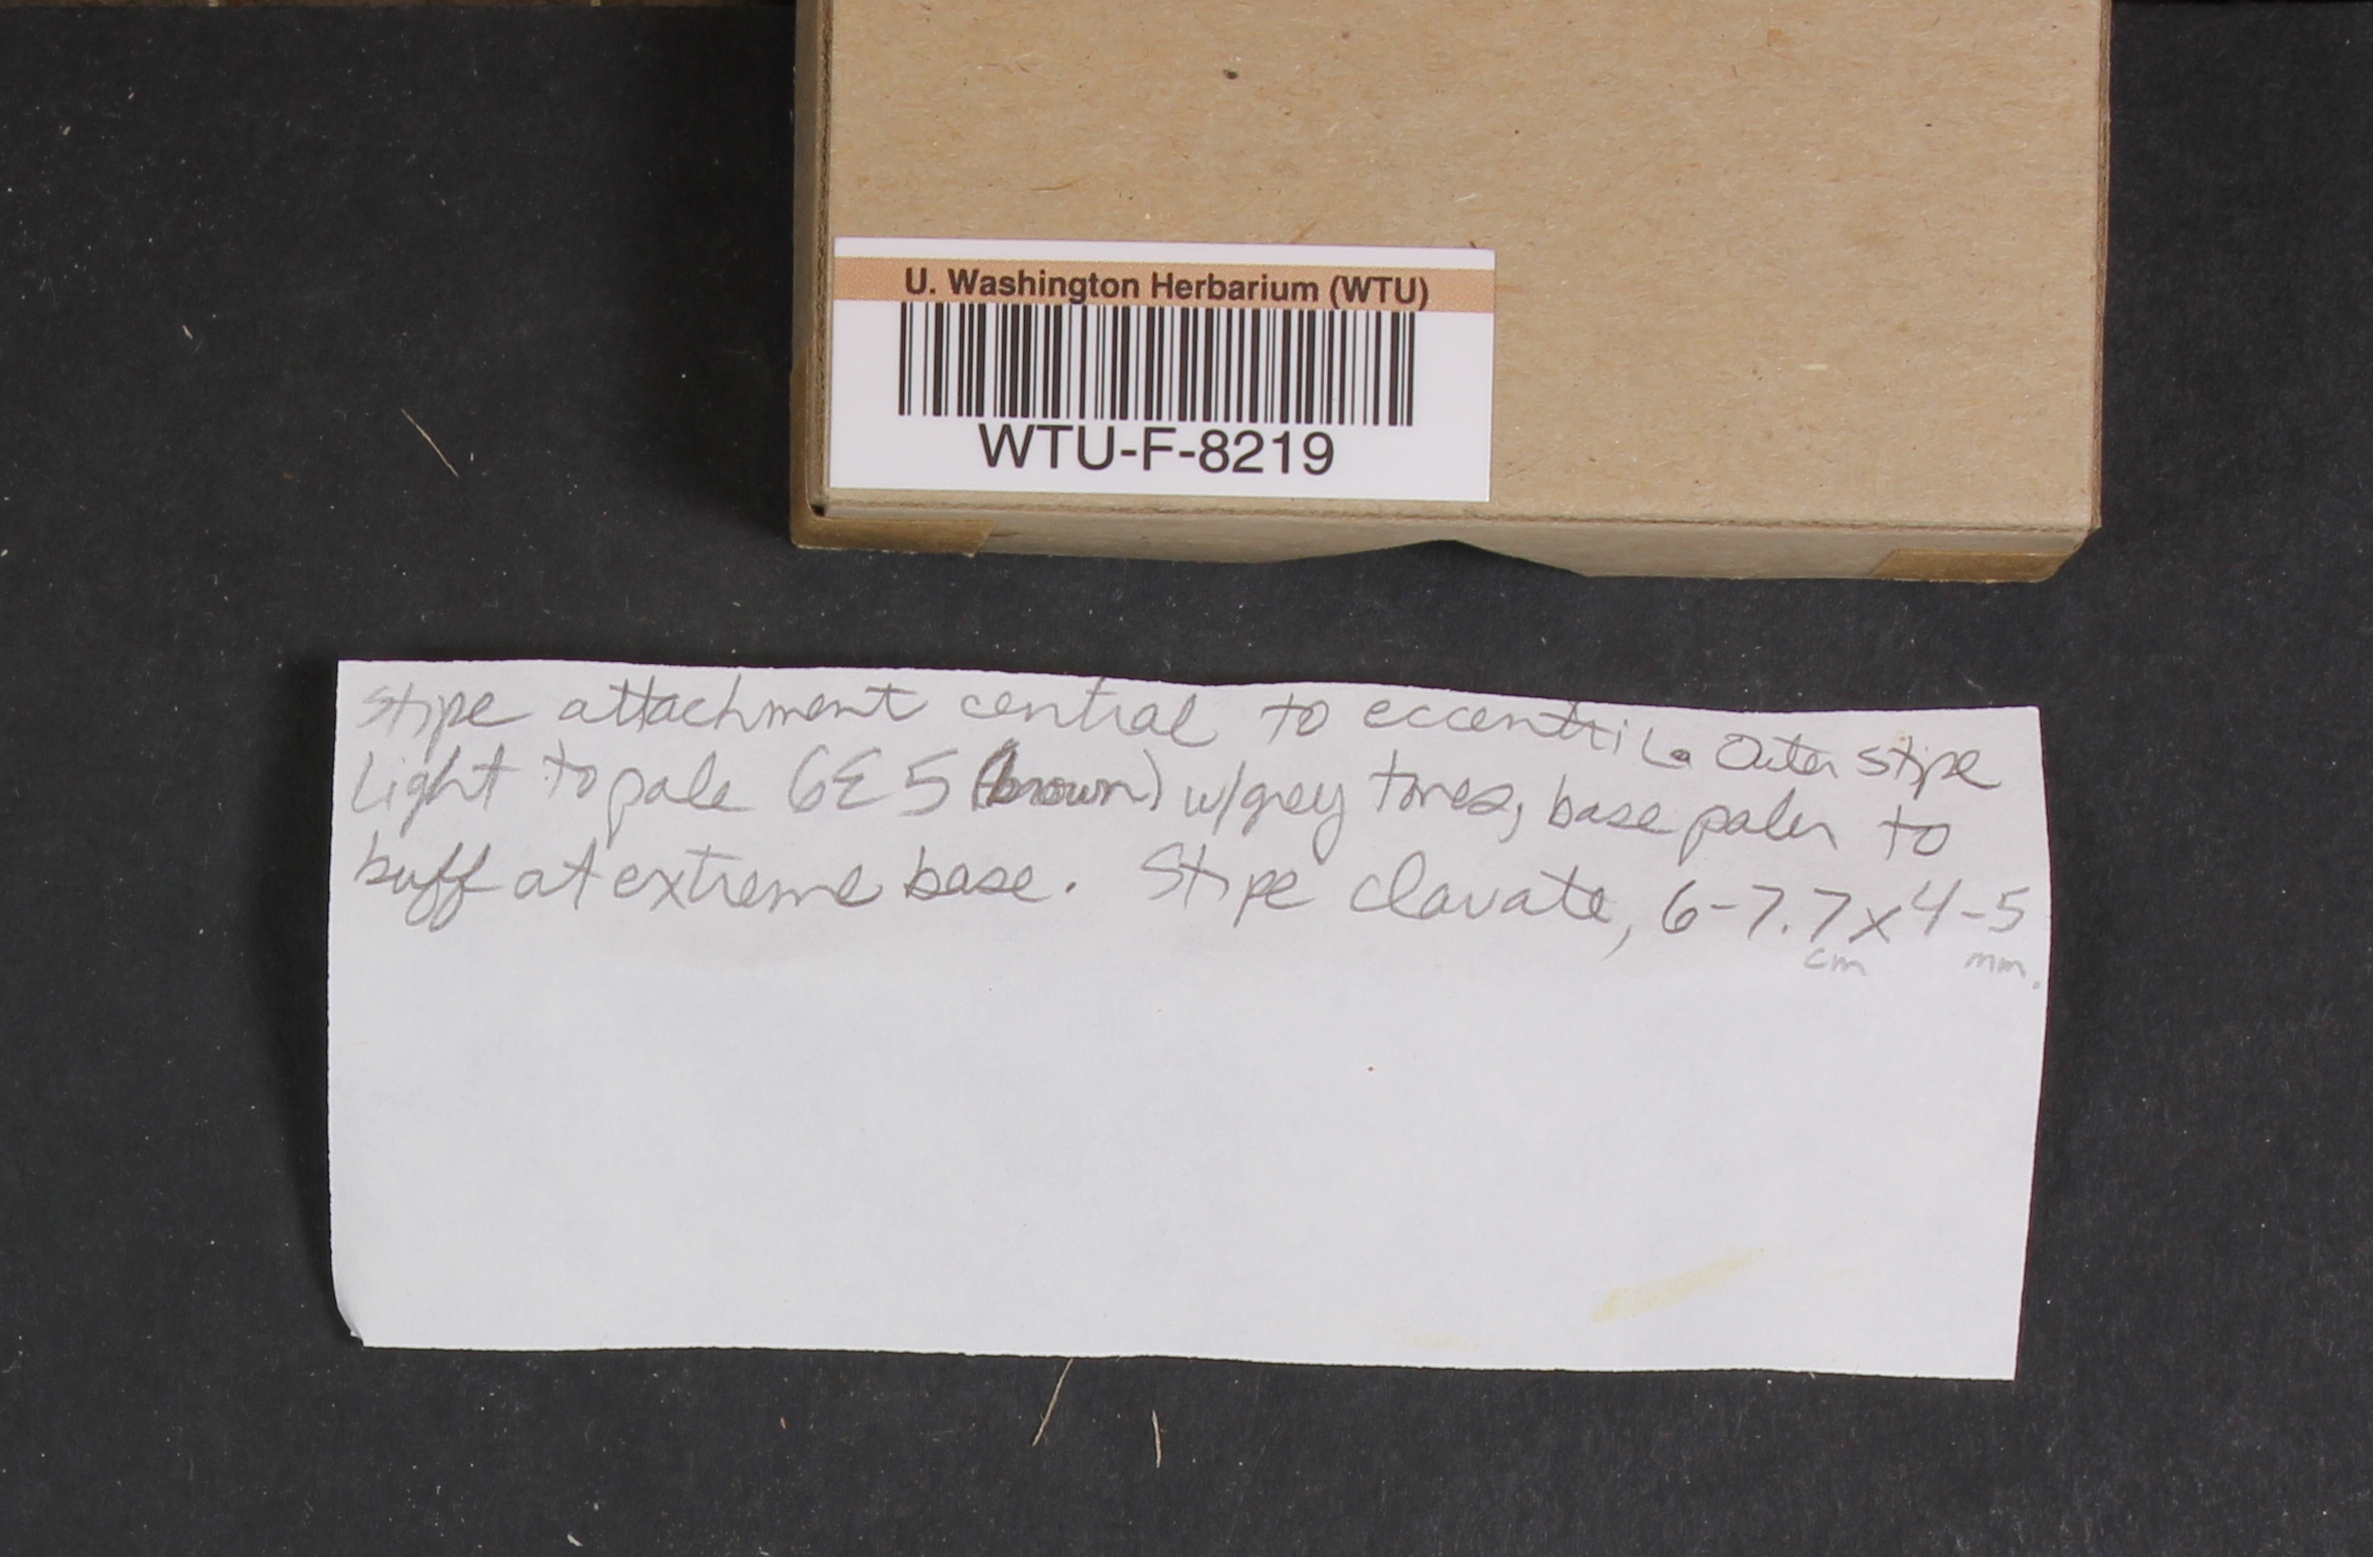 U. Washington Herbarium (WTU)
WTU-F-8219
stipe attachment central to eccentric. Outer stipe
light to pale 6E5 (brown) w/grey tones, base paler to
buff at extreme base. Stipe clavate, 6-7.7 x 4-5
cm mm.